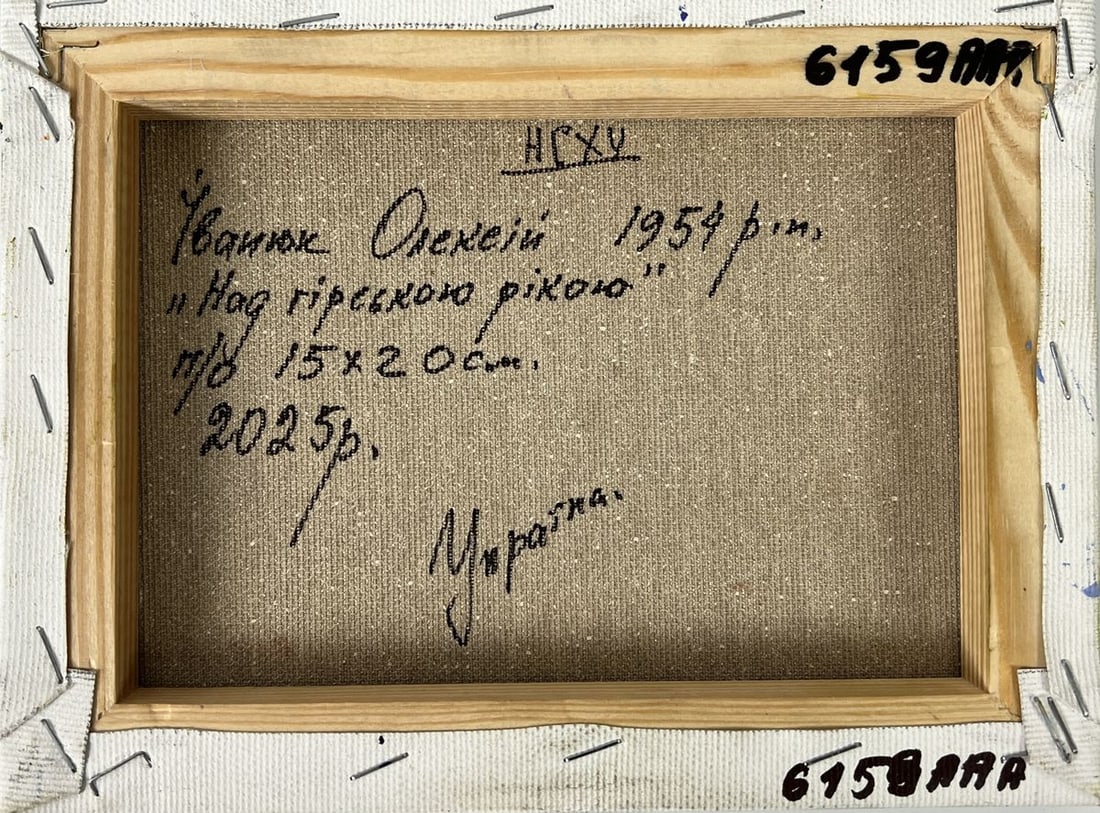 6159ААА
НСХУ
Іванюк Олексій 1954 р.н.
„Над гірською рікою"
п/о 15х20см.
2025р.
Україна.
6159ААА